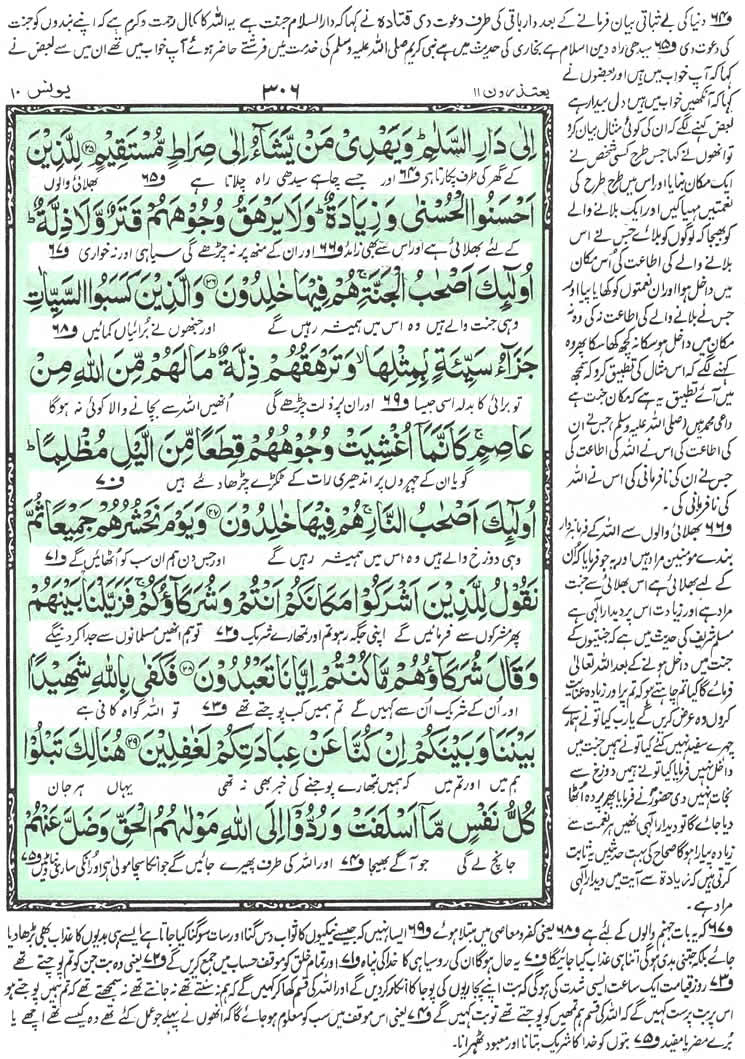 و۶۴ دنیا کی بے ثباتی بیان فرمانے کے بعد دار باقی کی طرف دعوت دی قتادہ نے کہا کہ دارالسلام جنت ہے یہ اللہ کا کمال رحمت و کرم ہے کہ اپنے بندوں کو جنت
کی دعوت دی و۶۵ سیدھی راہ دین اسلام ہے بخاری کی حدیث میں ہے نبی کریم صلی اللہ علیہ وسلم کی خدمت میں فرشتے حاضر ہوئے آپ خواب میں تھے ان میں سے بعض نے
یعتذرون ۱۱
۳۰۶
یونس ۱۰
اِلٰی دَارِ السَّلٰمِ ؕ وَیَهْدِیْ مَنْ یَّشَآءُ اِلٰی صِرَاطٍ مُّسْتَقِیْمٍ ﴿۲۵﴾ لِلَّذِیْنَ
کے گھر کی طرف پکارتا ہے و۶۴ اور جسے چاہے سیدھی راہ چلاتا ہے و۶۵ بھلائی والوں
اَحْسَنُوا الْحُسْنٰی وَ زِیَادَةٌ ؕ وَلَا یَرْهَقُ وُجُوْهَهُمْ قَتَرٌ وَّلَا ذِلَّةٌ ؕ
کے لئے بھلائی ہے اور اس سے بھی زائد و۶۶ اور ان کے منھ پر نہ چڑھے گی سیاہی اور نہ خواری و۶۷
اُولٰٓئِكَ اَصْحٰبُ الْجَنَّةِ ۚ هُمْ فِیْهَا خٰلِدُوْنَ ﴿۲۶﴾ وَالَّذِیْنَ كَسَبُوا السَّیِّاٰتِ
وہی جنت والے ہیں وہ اس میں ہمیشہ رہیں گے اور جنھوں نے برائیاں کمائیں و۶۸
جَزَآءُ سَیِّئَةٍۭ بِمِثْلِهَا ۙ وَتَرْهَقُهُمْ ذِلَّةٌ ؕ مَا لَهُمْ مِّنَ اللّٰهِ مِنْ
تو برائی کا بدلہ اسی جیسا و۶۹ اور ان پر ذلت چڑھے گی انھیں اللہ سے بچانے والا کوئی نہ ہوگا
عَاصِمٍ ۚ كَاَنَّمَاۤ اُغْشِیَتْ وُجُوْهُهُمْ قِطَعًا مِّنَ الَّیْلِ مُظْلِمًا ؕ
گویا ان کے چہروں پر اندھیری رات کے ٹکڑے چڑھا دئے ہیں و۷۰
اُولٰٓئِكَ اَصْحٰبُ النَّارِ ۚ هُمْ فِیْهَا خٰلِدُوْنَ ﴿۲۷﴾ وَیَوْمَ نَحْشُرُهُمْ جَمِیْعًا ثُمَّ
وہی دوزخ والے ہیں وہ اس میں ہمیشہ رہیں گے اور جس دن ہم ان سب کو اٹھائیں گے و۷۱
نَقُوْلُ لِلَّذِیْنَ اَشْرَكُوْا مَكَانَكُمْ اَنْتُمْ وَشُرَكَآؤُكُمْ ۚ فَزَیَّلْنَا بَیْنَهُمْ
پھر مشرکوں سے فرمائیں گے اپنی جگہ رہو تم اور تمھارے شریک و۷۲ تو ہم انھیں مسلمانوں سے جدا کر دینگے
وَقَالَ شُرَكَآؤُهُمْ مَّا كُنْتُمْ اِیَّانَا تَعْبُدُوْنَ ﴿۲۸﴾ فَكَفٰی بِاللّٰهِ شَهِیْدًا
اور ان کے شریک ان سے کہیں گے تم ہمیں کب پوجتے تھے و۷۳ تو اللہ گواہ کافی ہے
بَیْنَنَا وَبَیْنَكُمْ اِنْ كُنَّا عَنْ عِبَادَتِكُمْ لَغٰفِلِیْنَ ﴿۲۹﴾ هُنَالِكَ تَبْلُوْا
ہم میں اور تم میں کہ ہمیں تمھارے پوجنے کی خبر بھی نہ تھی یہاں ہر جان
كُلُّ نَفْسٍ مَّاۤ اَسْلَفَتْ وَرُدُّوْۤا اِلَی اللّٰهِ مَوْلٰىهُمُ الْحَقِّ وَضَلَّ عَنْهُمْ
جانچ لے گی جو آگے بھیجا و۷۴ اور اللہ کی طرف پھیرے جائیں گے جو انکا سچا مولیٰ ہے اور انکی ساری بناوٹیں و۷۵
کہا کہ آپ خواب میں ہیں اور بعضوں نے
کہا کہ آنکھیں خواب میں ہیں دل بیدار ہے
بعض کہنے لگے کہ ان کی کوئی مثال بیان کرو
تو انھوں نے کہا جس طرح کسی شخص نے
ایک مکان بنایا اور اس میں طرح طرح کی
نعمتیں مہیا کیں اور ایک بلانے والے
کو بھیجا کہ لوگوں کو بلائے جس نے اس
بلانے والے کی اطاعت کی اس مکان
میں داخل ہوا اور ان نعمتوں کو کھایا پیا اور
جس نے بلانے والے کی اطاعت نہ کی وہ نہ
مکان میں داخل ہو سکا نہ کچھ کھا سکا پھر وہ
کہنے لگے کہ اس مثال کی تطبیق کرو کہ سمجھ
میں آئے تطبیق یہ ہے کہ مکان جنت ہے
داعی محمد ہیں (صلی اللہ علیہ وسلم) جس نے ان
کی اطاعت کی اس نے اللہ کی اطاعت کی
جس نے ان کی نافرمانی کی اس نے اللہ
کی نافرمانی کی ۔
و۶۶ بھلائی والوں سے اللہ کے فرمانبردار
بندے مؤمنین مراد ہیں اور یہ جو فرمایا کہ ان
کے لیے بھلائی ہے اس بھلائی سے جنت
مراد ہے اور زیادت اس پر دیدار الٰہی ہے
مسلم شریف کی حدیث میں ہے کہ جنتیوں کے
جنت میں داخل ہونے کے بعد اللہ تعالیٰ
فرمائے گا کیا تم چاہتے ہو کہ تم پر اور زیادہ عنایت
کروں وہ عرض کریں گے یا رب کیا تو نے ہمارے
چہرے سفید نہیں کئے کیا تو نے ہمیں جنت میں
داخل نہیں فرمایا کیا تو نے ہمیں دوزخ سے
نجات نہیں دی حضور نے فرمایا پھر پردہ اٹھا
دیا جائے گا تو دیدار الٰہی انھیں ہر نعمت سے
زیادہ پیارا ہوگا صحاح کی بہت حدیثیں یہ ثابت
کرتی ہیں کہ زیادۃ سے آیت میں دیدار الٰہی
مراد ہے ۔
و۶۷ کہ یہ بات جہنم والوں کے لئے ہے و۶۸ یعنی کفر و معاصی میں مبتلا ہوئے و۶۹ ایسا نہیں کہ جیسے نیکیوں کا ثواب دس گنا اور سات سو گنا کیا جاتا ہے ایسے ہی بدیوں کا عذاب بھی بڑھا دیا
جائے بلکہ جتنی بدی ہوگی اتنا ہی عذاب کیا جائیگا و۷۰ یہ حال ہوگا ان کی روسیاہی کا خدا کی پناہ و۷۱ اور تمام خلق کو موقف حساب میں جمع کریں گے و۷۲ یعنی وہ بت جن کو تم پوجتے تھے
و۷۳ روز قیامت ایک ساعت ایسی شدت کی ہوگی کہ بت اپنے پجاریوں کی پوجا کا انکار کر دیں گے اور اللہ کی قسم کھا کر کہیں گے کہ ہم نہ سنتے تھے نہ دیکھتے تھے نہ جانتے تھے نہ سمجھتے تھے کہ تم ہمیں پوجتے ہو
اس پر بت پرست کہیں گے کہ اللہ کی قسم ہم تمھیں کو پوجتے تھے تو بت کہیں گے و۷۴ یعنی اس موقف میں سب کو معلوم ہو جائے گا کہ انھوں نے پہلے جو عمل کئے تھے وہ کیسے تھے اچھے یا
برے مضر یا مفید و۷۵ بتوں کو خدا کا شریک بتانا اور معبود ٹھہرانا۔